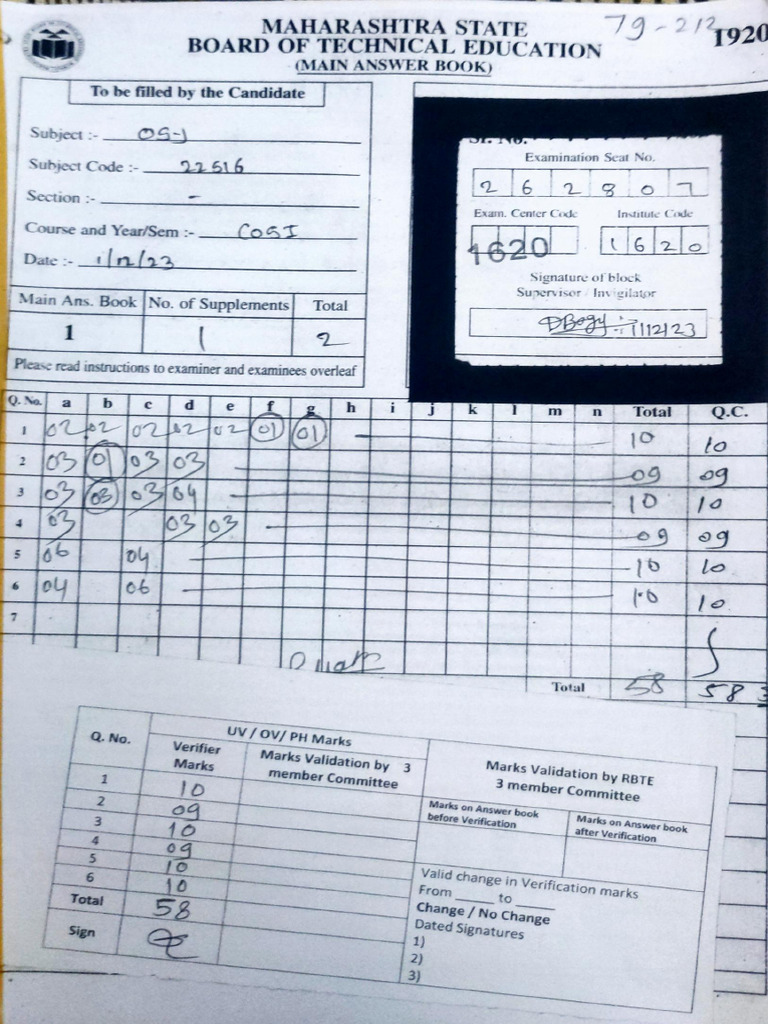 MAHARASHTRA STATE
BOARD OF TECHNICAL EDUCATION
(MAIN ANSWER BOOK)
79-212
1920
To be filled by the Candidate
Subject :- OSY
Subject Code :- 22516
Section :- -
Course and Year/Sem :- CO5I
Date :- 1/12/23
Main Ans. Book No. of Supplements Total
1 1 2
Please read instructions to examiner and examinees overleaf
Sr. No.
Examination Seat No.
2 6 2 8 0 7
Exam. Center Code Institute Code
1620 1 6 2 0
Signature of block
Supervisor / Invigilator
1/12/23
Q. No. a b c d e f g h i j k l m n Total Q.C.
1 02 02 02 02 02 01 01 10 10
2 03 01 03 03 09 09
3 03 03 03 04 10 10
4 03 03 03 09 09
5 06 04 10 10
6 04 06 10 10
7
Total 58 58
Q. No. UV / OV/ PH Marks
Verifier Marks
Marks Validation by 3 member Committee
Marks Validation by RBTE
3 member Committee
Marks on Answer book before Verification
Marks on Answer book after Verification
1 10
2 09
3 10
4 09
5 10
6 10
Total 58
Sign
Valid change in Verification marks
From ______ to ______
Change / No Change
Dated Signatures
1)
2)
3)